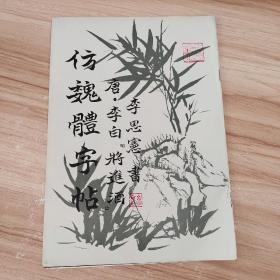 仿魏體字帖
唐·李白“將進酒”
李思憲書